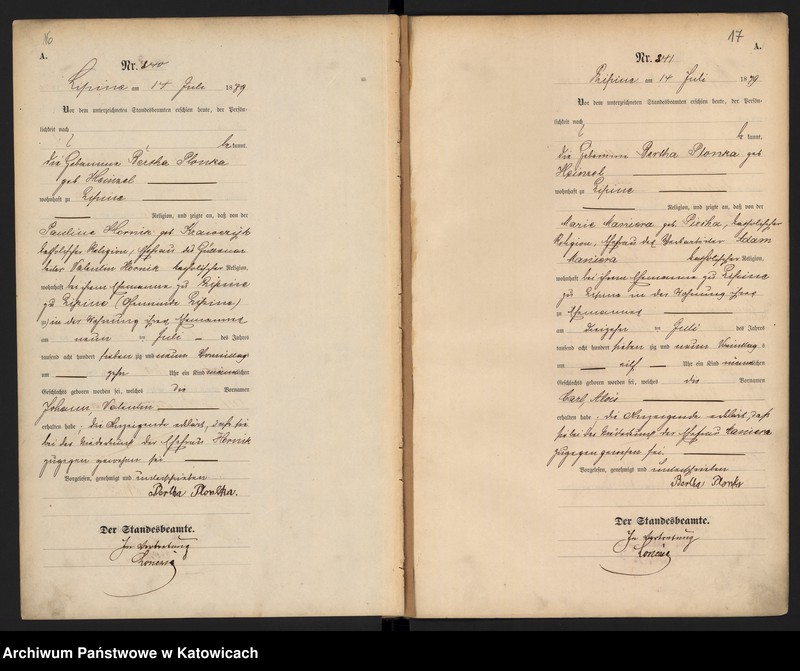 16
A.
Nr. 240
Lipine am 14 Juli 1879
Vor dem unterzeichneten Standesbeamten erschien heute, der Persön-
lichkeit nach
kannt,
die Hebamme Bertha Plonka
geb Heinzel
wohnhaft zu Lipine
Religion, und zeigte an, daß von der
Pauline Hornik geb Krawczyk
katholischer Religion, Ehefrau des
Valentin Hornik katholischer Religion,
wohnhaft bei ihrem Ehemanne zu Lipine
zu Lipine
in der Wohnung ihres Ehemannes
am neun ten Juli des Jahres
tausend acht hundert sieben zig und neun Vormittags
um zehn Uhr ein Kind männlichen
Geschlechts geboren worden sei, welches die Vornamen
Johann Valentin
erhalten habe; die Anzeigende erklärt, daß sie
bei der Niederkunft der Ehefrau Hornik
zugegen gewesen sei.
Vorgelesen, genehmigt und unterschrieben
Bertha Plonka.
Der Standesbeamte.
In Vertretung
17
A.
Nr. 241
Lipine am 14 Juli 1879
Vor dem unterzeichneten Standesbeamten erschien heute, der Persön-
lichkeit nach
kannt,
die Hebamme Bertha Plonka geb
Heinzel
wohnhaft zu Lipine
Religion, und zeigte an, daß von der
Marie geb katholischer
Religion, Ehefrau des Adam
katholischer Religion,
wohnhaft bei ihrem Ehemanne zu Lipine
zu Lipine in der Wohnung ihres
Ehemannes
am dreizehn ten Juli des Jahres
tausend acht hundert sieben zig und neun Vormittags
um eilf Uhr ein Kind männlichen
Geschlechts geboren worden sei, welches die Vornamen
Carl Alois
erhalten habe; die Anzeigende erklärt, daß
sie bei der Niederkunft der Ehefrau
zugegen gewesen sei.
Vorgelesen, genehmigt und unterschrieben
Bertha Plonka
Der Standesbeamte.
In Vertretung
Archiwum Państwowe w Katowicach